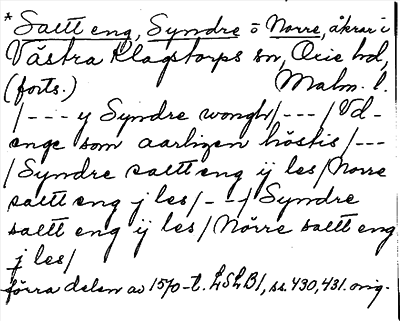 * Saltt eng, Syndre o Norre, åkrar i
Västra Klagstorps sn, Oxie hd,
(forts.) Malm. l.
/--- y Syndre wongh/---/Vd-
enge som aarligen höstis/---
/Syndre saltt eng ij les/Norre
saltt eng j les/---/Syndre
saltt eng ij les/Nörre saltt eng
j les/
förra delen av 1570-t. LSLB1, ss. 430, 431. orig.